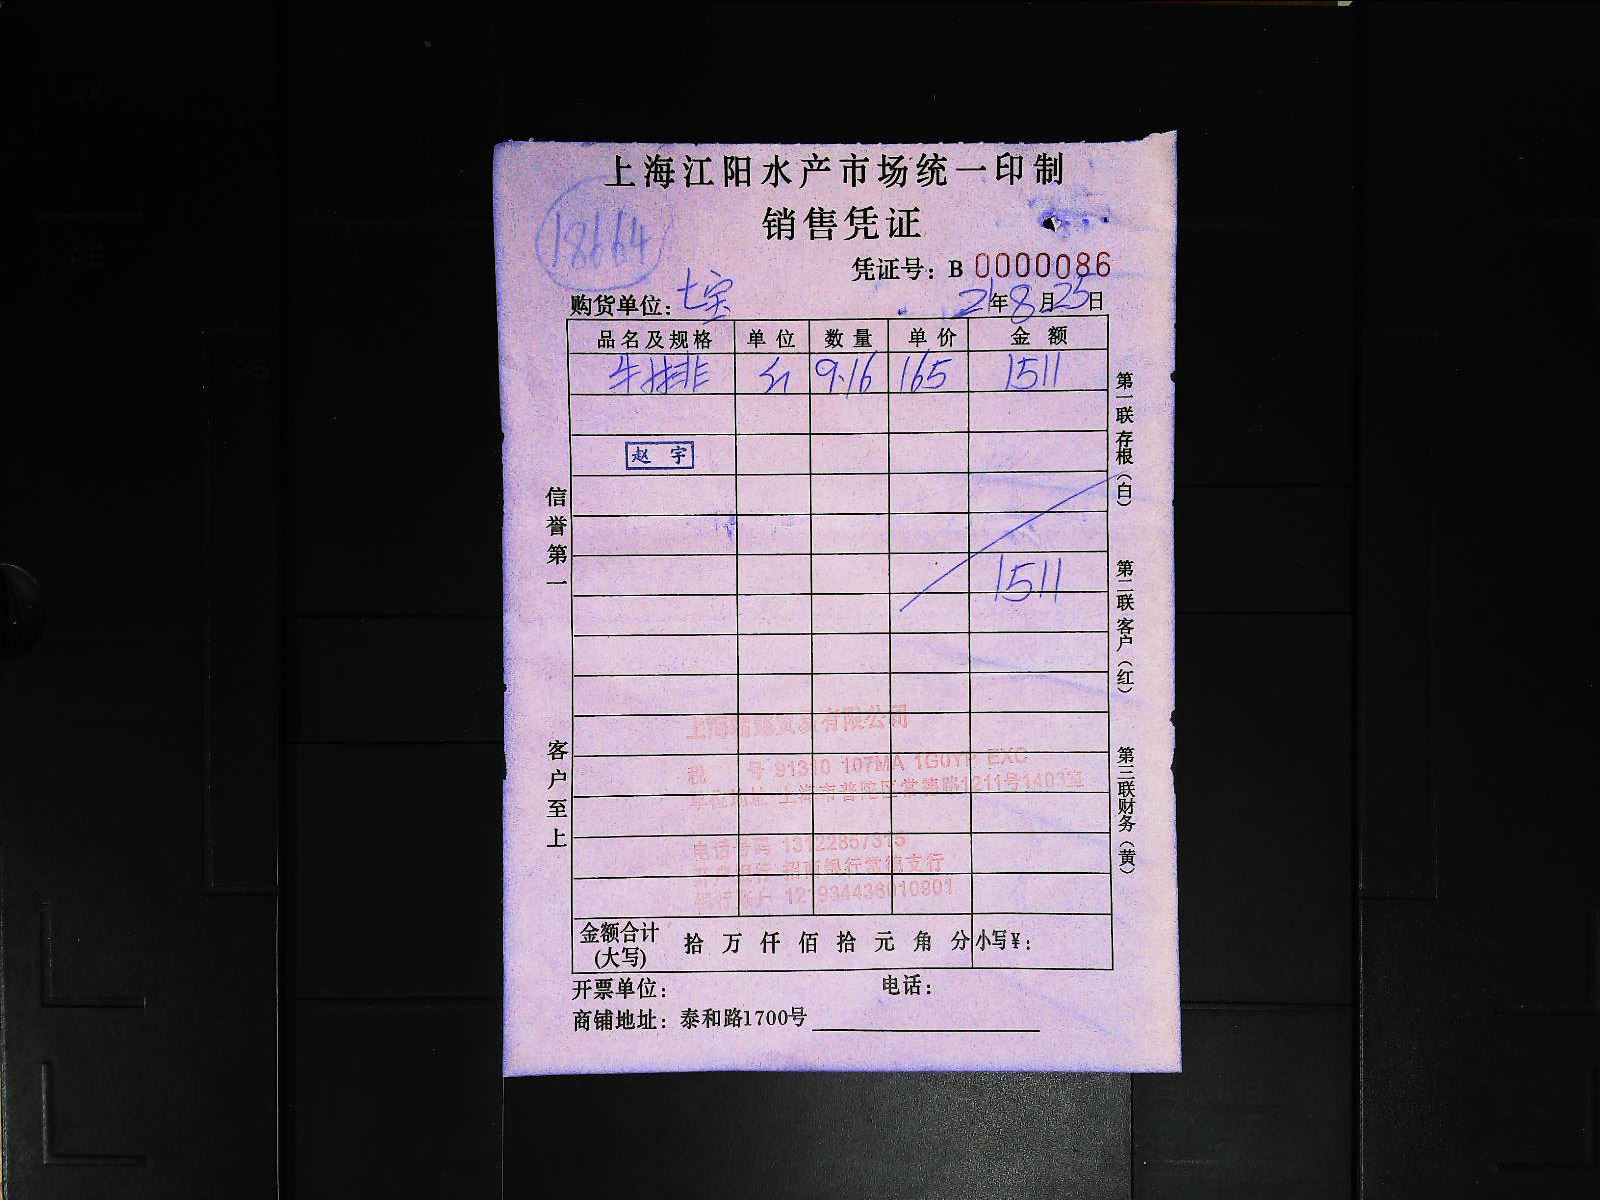 上海江阳水产市场统一印制
销售凭证
18664
凭证号：B 0000086
购货单位：七宝 21年8月25日
品名及规格 单位 数量 单价 金额
牛排 9.16 165 1511
赵宇
1511
信誉第一
客户至上
第一联存根（白）
第二联客户（红）
第三联财务（黄）
上海 贸易有限公司
税 号 91310 107MA 1G0YP EXC
单位地址 上海市普陀区常德路1211号1403室
电话号码 13122857315
开户银行 招商银行常德支行
银行账户 121934436010801
金额合计(大写) 拾 万 仟 佰 拾 元 角 分 小写￥：
开票单位： 电话：
商铺地址：泰和路1700号